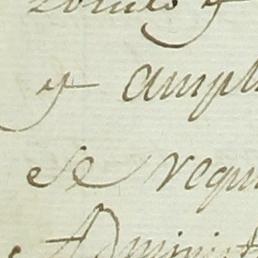 y ampl
se requi
Administ